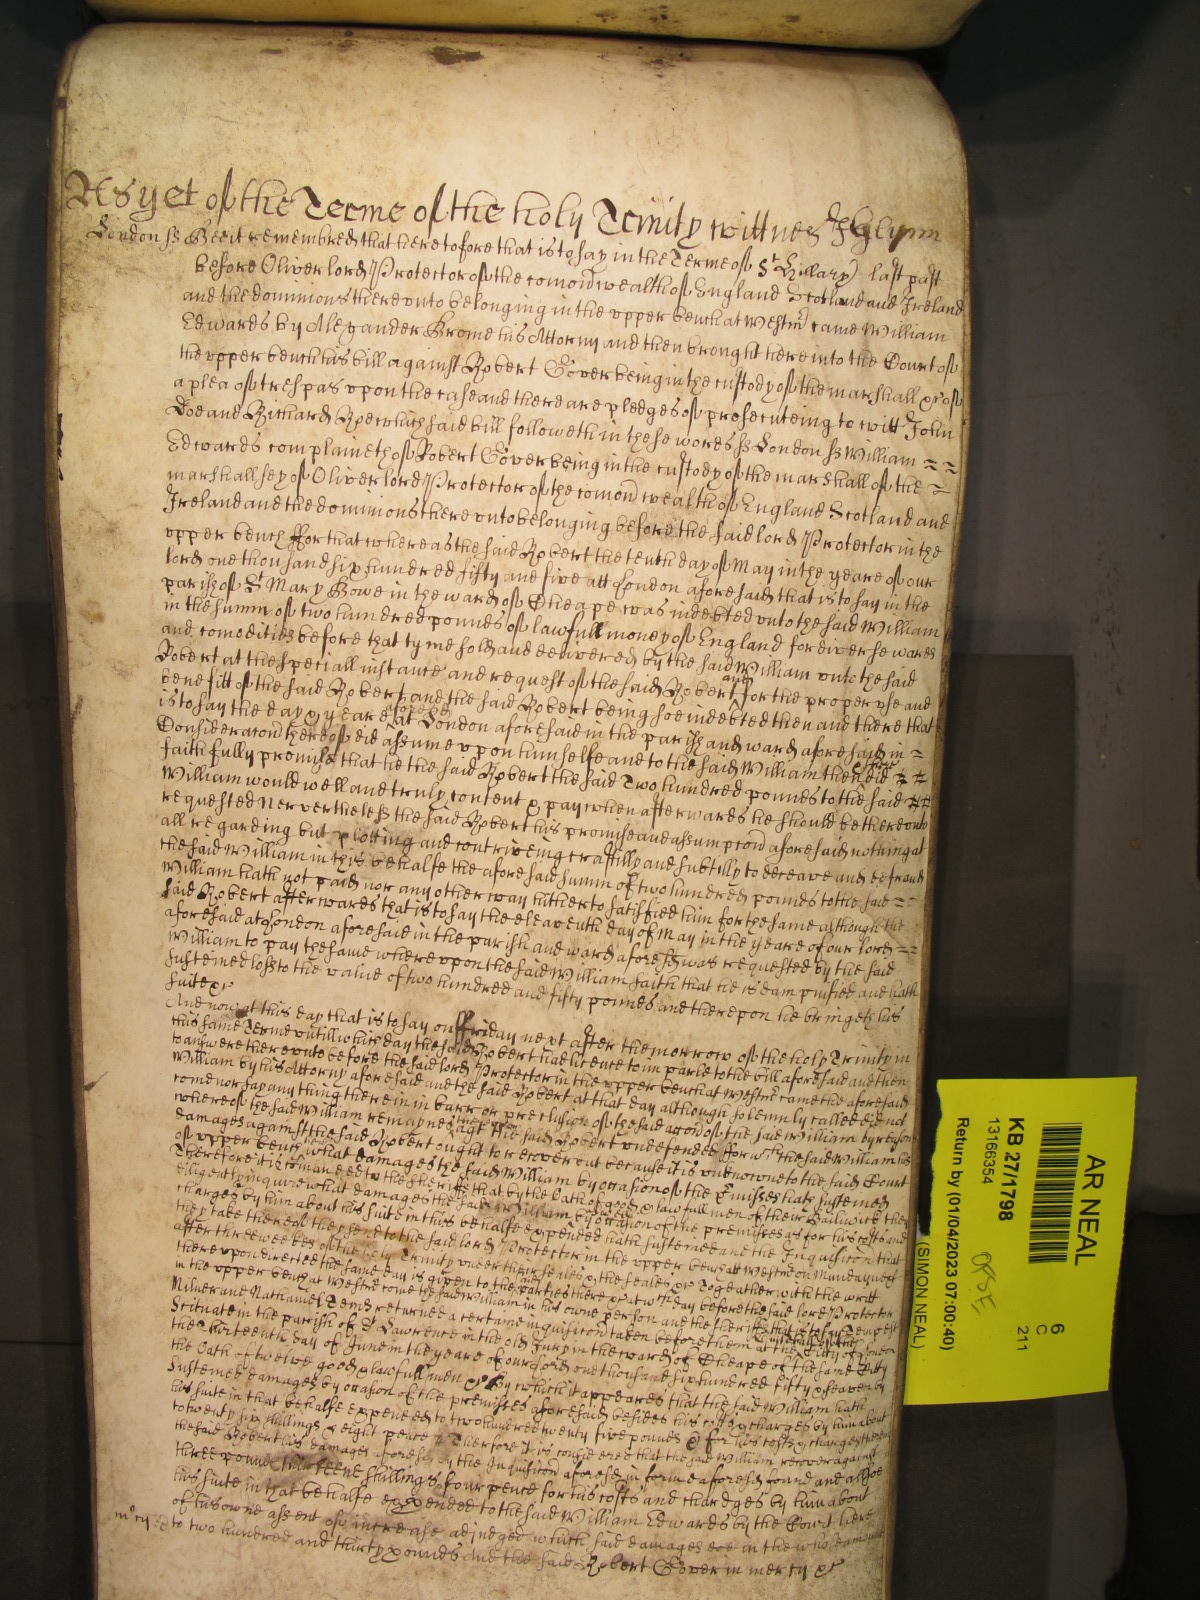 As yet of the Terme of the holy Trinity wittnes J Glynn
London ss Bee it remembred that heretofore that is to say in the Terme of St Hillary last past
before Oliver lord Protector of the comon wealth of England Scotland and Ireland
and the dominions there unto belonging in the upper bench at Westmr came William
Edwards by Alexander Brome his Attorny and then brought here into the Court of
the upper bench his bill against Robert Gover being in the custody of the marshall &c of
a plea of trespas upon the case and there are pledges of prosecuteing to witt John
Doe and Richard Roe which said bill followeth in these words ss London ss William
Edwards complaineth of Robert Gover being in the custody of the marshall of the
marshallsey of Oliver lord Protector of the comon wealth of England Scotland and
Ireland and the dominions there unto belonging before the said lord Protector in the
upper bench ffor that whereas the said Robert the tenth day of May in the yeare of our
lord one thousand six hundred fifty and five att London aforesaid that is to say in the
parish of St Mary Bowe in the ward of Cheape was indebted unto the said William
in the summ of two hundred pounds of lawfull money of England for diverse wares
and comodities before that tyme sold and delivered by the said William unto the said
Robert at the speciall instance and request of the said Robert and for the proper use and
benefitt of the said Robert and the said Robert being soe indebted then and there that
is to say the day & yeare aforesd at London aforesaid in the parish and ward aforesaid in
Consideracon thereof did assume upon himselfe and to the said William then did
faithfully promise that he the said Robert the said Two hundred pounds to the said
William would well and truly content & pay when afterwards he should be thereunto
requested Nevertheless the said Robert his promise and assumpcon aforesaid nothing at
all regarding but plotting and contriveing craftilly and subtilly to deceave and defraud
the said William in this behalfe the aforesaid summ of two hundred pounds to the said
William hath not paid nor any other way hitherto satisfied him for the same although the
said Robert afterwards that is to say the eleaventh day of May in the yeare of our lord
aforesaid at London aforesaid in the parish and ward aforesd was requested by the said
William to pay the same whereupon the said William saith that he is dampnified and hath
susteined loss to the value of two hundred and fifty pounds and thereupon he bringeth his
suite &c
And now at this day that is to say on ffriday next after the morrow of the holy Trinity in
this same Terme untill which day the said Robert had licence to imparle to the bill aforesaid and then
to answere thereunto before the said lord Protector in the upper bench at Westmr came the aforesaid
William by his Attorny aforesaid and the said Robert at that day although solemnly called did not
come nor say any thing there in in barr or preclusion of the said accon of the said William by reason
whereof the said William remaynes agt the said Robert undefended ffor wch the said William his
damages against the said Robert ought to recover but because it is unknowne to the said Court
of upper bench what damages the said William by occasion of the premisses hath susteined
Therefore it is comanded to the sheriffs that by the Oath of good & lawfull men of their Bailiwick they
diligently inquire what damages the said William by occasion of the premisses as for his costs and
charges by him about his suite in this behalfe expended hath susteined and the Inquisicon that
they take thereof they send to the said lord Protector in the upper bench att Westmr on Munday next
after three weekes of the holy Trinity under their seales & the seales &c Together with the writt
there upon directed the same day is given to the parties there &c at wch day before the said lord Protector
in the upper bench at Westmr come the said William in his owne person and the sheriffs that is to say Tempest
Milner and Nathaniel Tems returned a certaine inquisicon taken before them at the City of London
Scituate in the parish of St Lawrence in the old Jury in the ward of Cheape of the same City
the thirteenth day of June in the yeare of our lord one thousand six hundred fifty & seaven by
the Oath of twelve good & lawfull men &c By which it appeares that the said William hath
susteined damages by occasion of the premisses aforesaid besides his costs & charges by him about
his suite in that behalfe expended to two hundred twenty five pounds & for his costs & charges
to twenty six shillings & eight pence Therefore it is considered that the said William recover against
the said Robert his damages aforesd by the Inquisicon aforesd in forme aforesd found and allsoe
three pounds thirteene shillings & four pence for his costs and chardges by him about
his suite in that behalfe expended to the said William Edwards by the Court here
of his owne assent of increase adjudged which said damages in the whole amount
mcy to two hundred and thirty pounds And the said Robert Gover in mercy &c
AR NEAL
KB 27/1798
13166354
Return by (01/04/2023 07:00:40)
(SIMON NEAL)
6
C
211